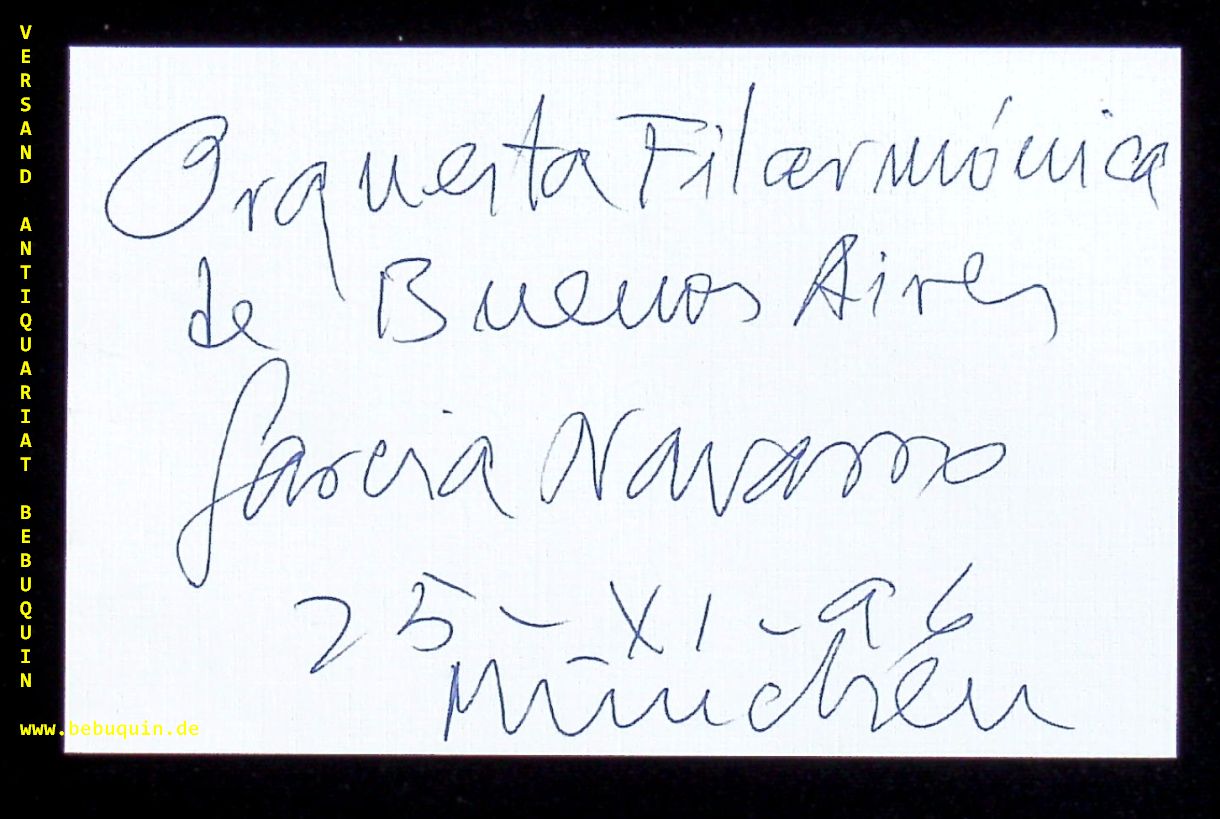 VERSAND ANTIQUARIAT BEBUQUIN
Orquesta Filarmónica
de Buenos Aires
Garcia Navarro
25-XI-96
München
www.bebuquin.de